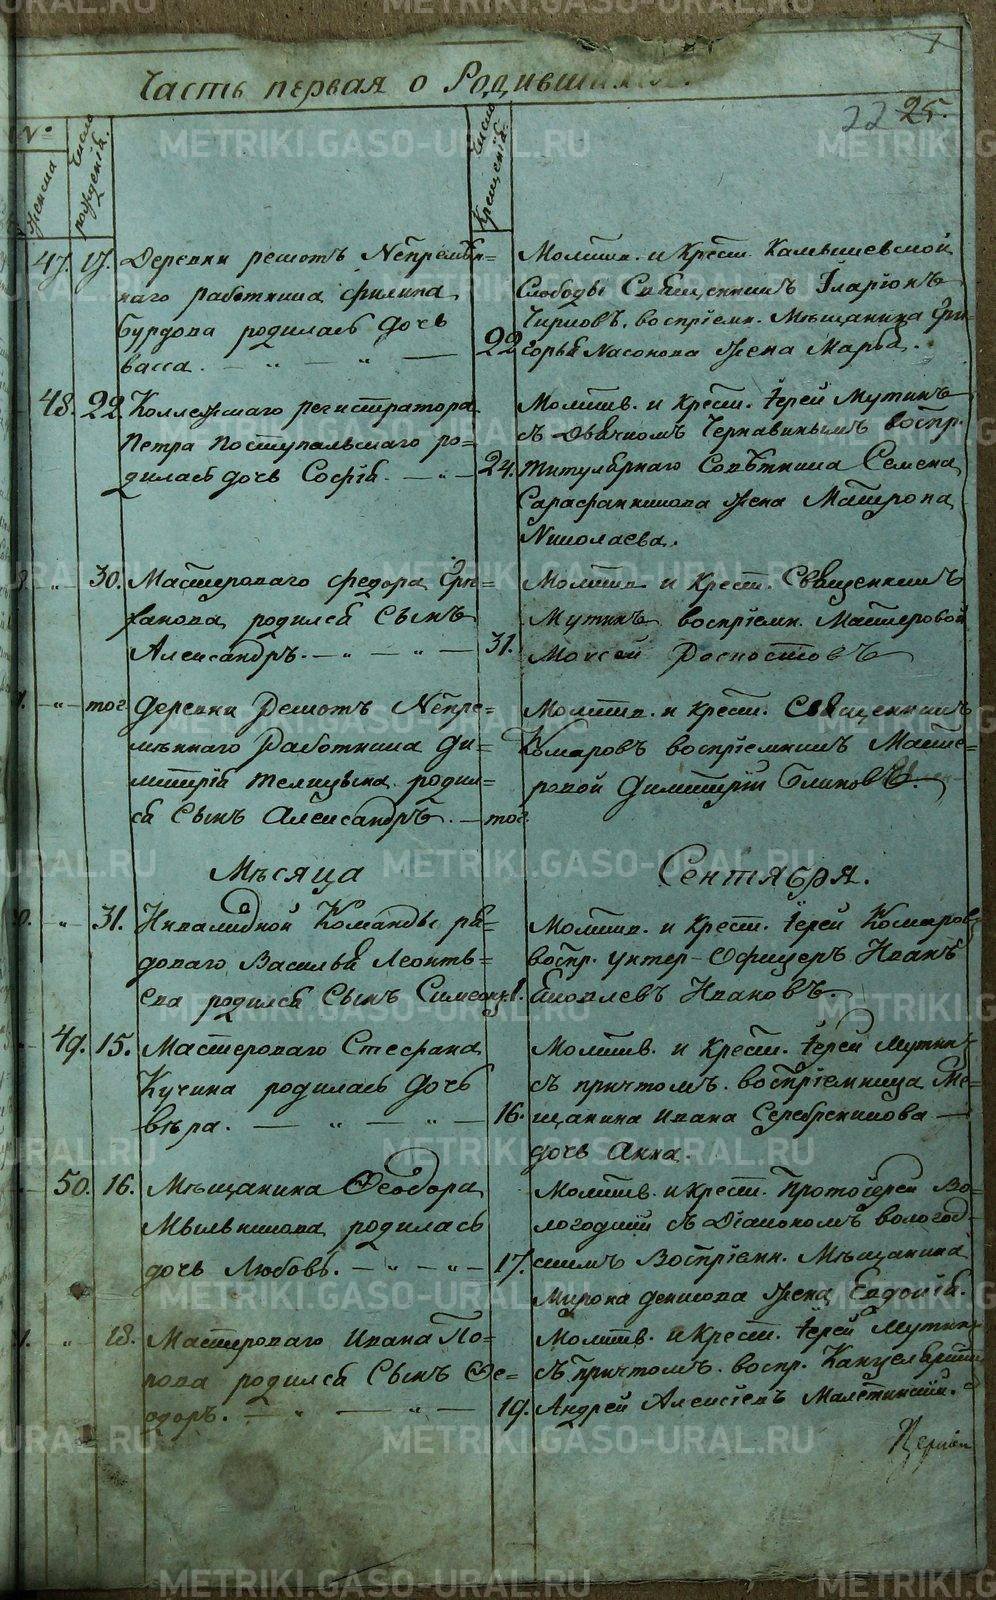 Часть первая о Родившихся.
22 25.
№
Женска
Число рожденія.
Число Крещенія.
47. 17. Деревни решотъ Непремѣн-
наго работника филипа
Бурдова родилась дочь
васса.
22
Молитв. и Крест. Камышевской
Слободы Священникъ Іларіонъ
Чирковъ, воспріемн. Мѣщанина Гри-
горья Насонова Жена Марья.
48. 22. Коллежскаго регистратора
Петра Поступальскаго ро-
дилась дочь Софія.
24.
Молитв. и крест. Іерей Мутинъ
съ Дьячкомъ Чернавинымъ воспр.
титулярнаго Совѣтника Семена
Сарафанникова Жена Матрона
Николаева.
30. Мастероваго федора
родился Сынъ
Александръ.
31.
Молитв. и Крест. Священникъ
Мутинъ, воспріемн. Мастеровой
Моисей Роспостовъ
тог. деревни Решотъ Непре-
мѣннаго Работника Ди-
митрія Телицына родил-
ся Сынъ Александръ.
тог.
Молитв. и крест. Священникъ
Комаровъ воспріемникъ Масте-
ровой Димитрій Блиновъ.
Мѣсяца Сентября.
31. Инвалидной Команды ря-
доваго Василья Леонть-
ева родился Сынъ Симеонъ
1.
Молитв. и крест. Іерей Комаровъ
воспр. унтер-Офицеръ Иванъ
Яковлевъ Ивановъ.
49. 15. Мастероваго Стефана
Кучина родилась Дочь
вѣра.
16.
Молитв. и крест. Іерей Мутинъ
съ причтомъ. воспріемница Ме-
щанина Ивана Серебреникова
дочь Анна.
50. 16. Мѣщанина Ѳеодора
Мыльникова родилась
дочь Любовь.
17.
Молитв. и Крест. Протоіерей Во-
логодскій съ Діакономъ вологод-
скимъ Воспріемн. Мѣщанина
Мирона денисова Жена Евдокія.
18. Мастероваго Ивана По-
пова родился Сынъ Ѳе-
одоръ.
19.
Молитв. и Крест. Іерей Мутинъ
съ причтомъ. воспр. Канцеляристъ
Андрей Алексіевъ Малетинскій.
METRIKI.GASO-URAL.RU